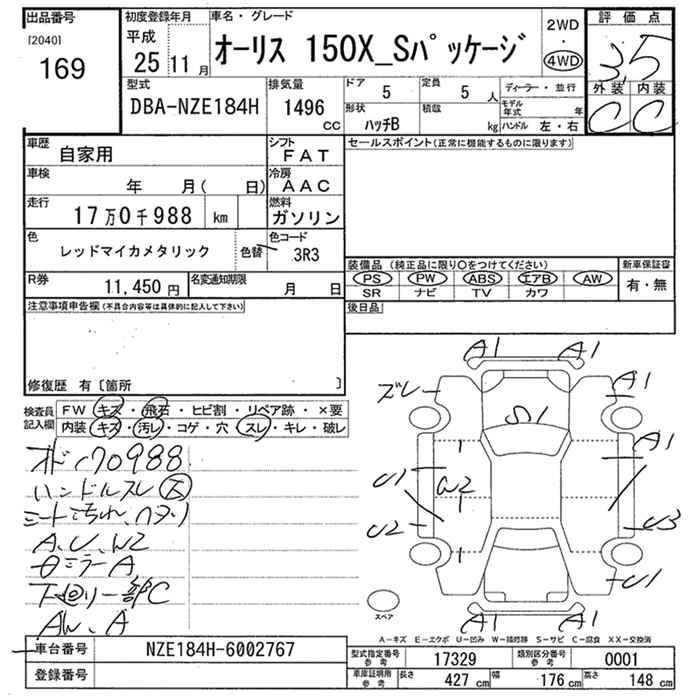 出品番号
[2040]
169
初度登録年月
平成
25 11 月
車名・グレード
オーリス 150X_Sパッケージ
2WD
・
4WD
評価点
3.5
外装 内装
C C
型式
DBA-NZE184H
排気量
1496
CC
ドア
5
定員
5 人
形状
ハッチB
積載
kg
ディーラー・並行
モデル年式 年
ハンドル 左・右
車歴
自家用
シフト
FAT
車検
年 月( 日)
冷房
AAC
走行
17万0千988 km
燃料
ガソリン
色
レッドマイカメタリック
色替
色コード
3R3
R券
11,450 円
名変通知期限
月 日
セールスポイント(正常に機能するものに限ります)
装備品 (純正品に限り○をつけてください)
PS PW ABS エアB AW
SR ナビ TV カワ
新車保証書
有・無
後日品
注意事項申告欄(不具合内容等は具体的に記入して下さい)
修復歴 有〔箇所 〕
検査員記入欄
FW キズ・飛石・ヒビ割・リペア跡・×要
内装 キズ・汚レ・コゲ・穴・スレ・キレ・破レ
170988
ハンドルスレ 大
シートよごれ、ヘタリ
A、U、W2
ミラーA
下廻り一部C
AW、A
A1 A1
ズレ A1
S1
A1
U1 W2
U2 U3
U1
A1 A1
スペア
A-キズ E-エクボ U-凹み W-補修跡 S-サビ C-腐食 XX-交換済
車台番号
NZE184H-6002767
登録番号
型式指定番号 参考
17329
類別区分番号 参考
0001
車庫証明用 参考
長さ 427 cm 幅 176 cm 高さ 148 cm